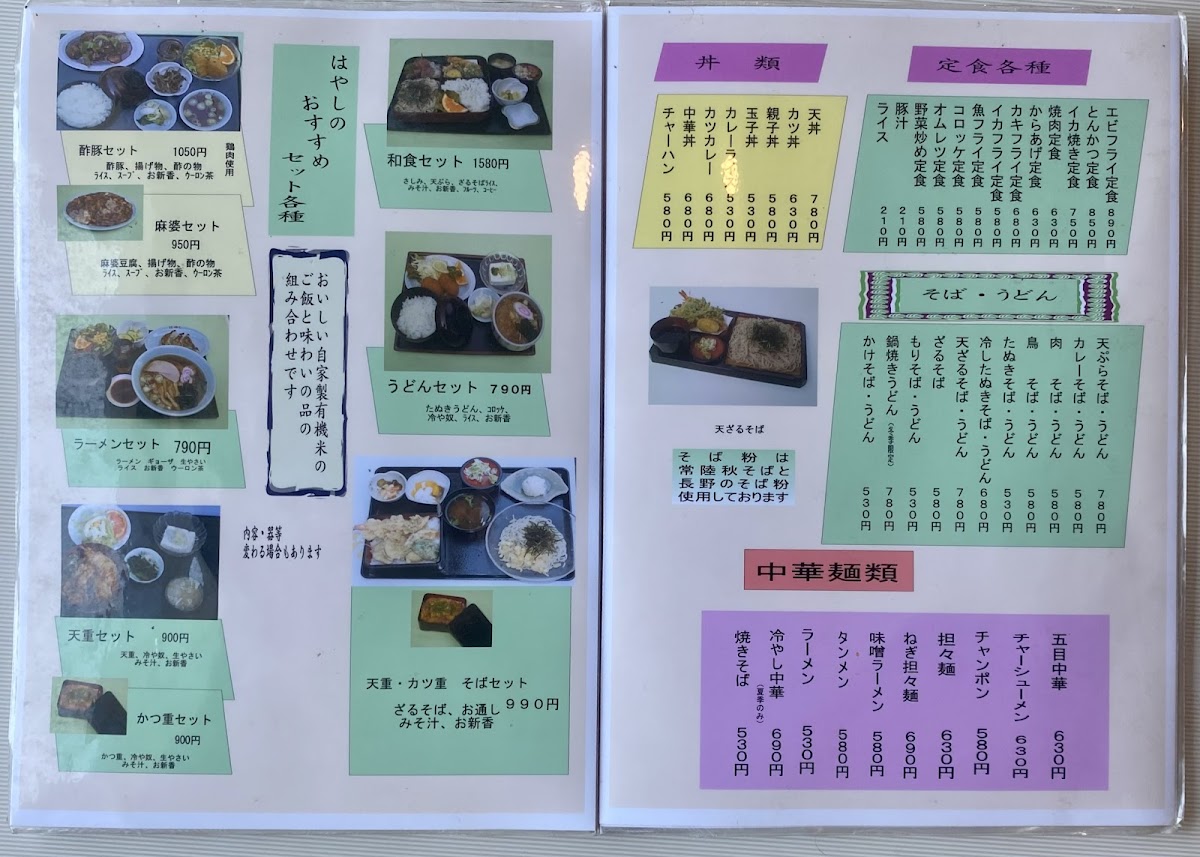 はやしの
おすすめ
セット各種
酢豚セット 1050円
鶏肉使用
酢豚、揚げ物、酢の物
ライス、スープ、お新香、ウーロン茶
麻婆セット
950円
麻婆豆腐、揚げ物、酢の物
ライス、スープ、お新香、ウーロン茶
ラーメンセット 790円
ラーメン ギョーザ 生やさい
ライス お新香 ウーロン茶
天重セット 900円
天重、冷や奴、生やさい
みそ汁、お新香
かつ重セット
900円
かつ重、冷や奴、生やさい
みそ汁、お新香
おいしい自家製有機米の
ご飯と味わいの品の
組み合わせです
内容・器等
変わる場合もあります
和食セット 1580円
さしみ、天ぷら、ざるそばライス、
みそ汁、お新香、フルーツ、コーヒー
うどんセット 790円
たぬきうどん、コロッケ、
冷や奴、ライス、お新香
天重・カツ重 そばセット
ざるそば、お通し 990円
みそ汁、お新香
丼類
天丼 780円
カツ丼 630円
親子丼 580円
玉子丼 530円
カレーラ 530円
カツカレー 680円
中華丼 680円
チャーハン 580円
定食各種
エビフライ定食 890円
とんかつ定食 850円
イカ焼き定食 750円
焼肉定食 630円
からあげ定食 630円
カキフライ定食 680円
イカフライ定食 580円
魚フライ定食 580円
コロッケ定食 580円
オムレツ定食 580円
野菜炒め定食 580円
豚汁 210円
ライス 210円
そば・うどん
天ぷらそば・うどん 780円
カレーそば・うどん 580円
肉 そば・うどん 580円
鳥 そば・うどん 580円
たぬきそば・うどん 530円
冷したぬきそば・うどん 680円
天ざるそば・うどん 780円
ざるそば 580円
もりそば・うどん 530円
鍋焼きうどん(冬季限定) 780円
かけそば・うどん 530円
天ざるそば
そば粉は
常陸秋そばと
長野のそば粉
使用しております
中華麺類
五目中華 630円
チャーシューメン 630円
チャンポン 580円
担々麺 630円
ねぎ担々麺 690円
味噌ラーメン 580円
タンメン 580円
ラーメン 530円
冷やし中華(夏季のみ) 690円
焼きそば 530円